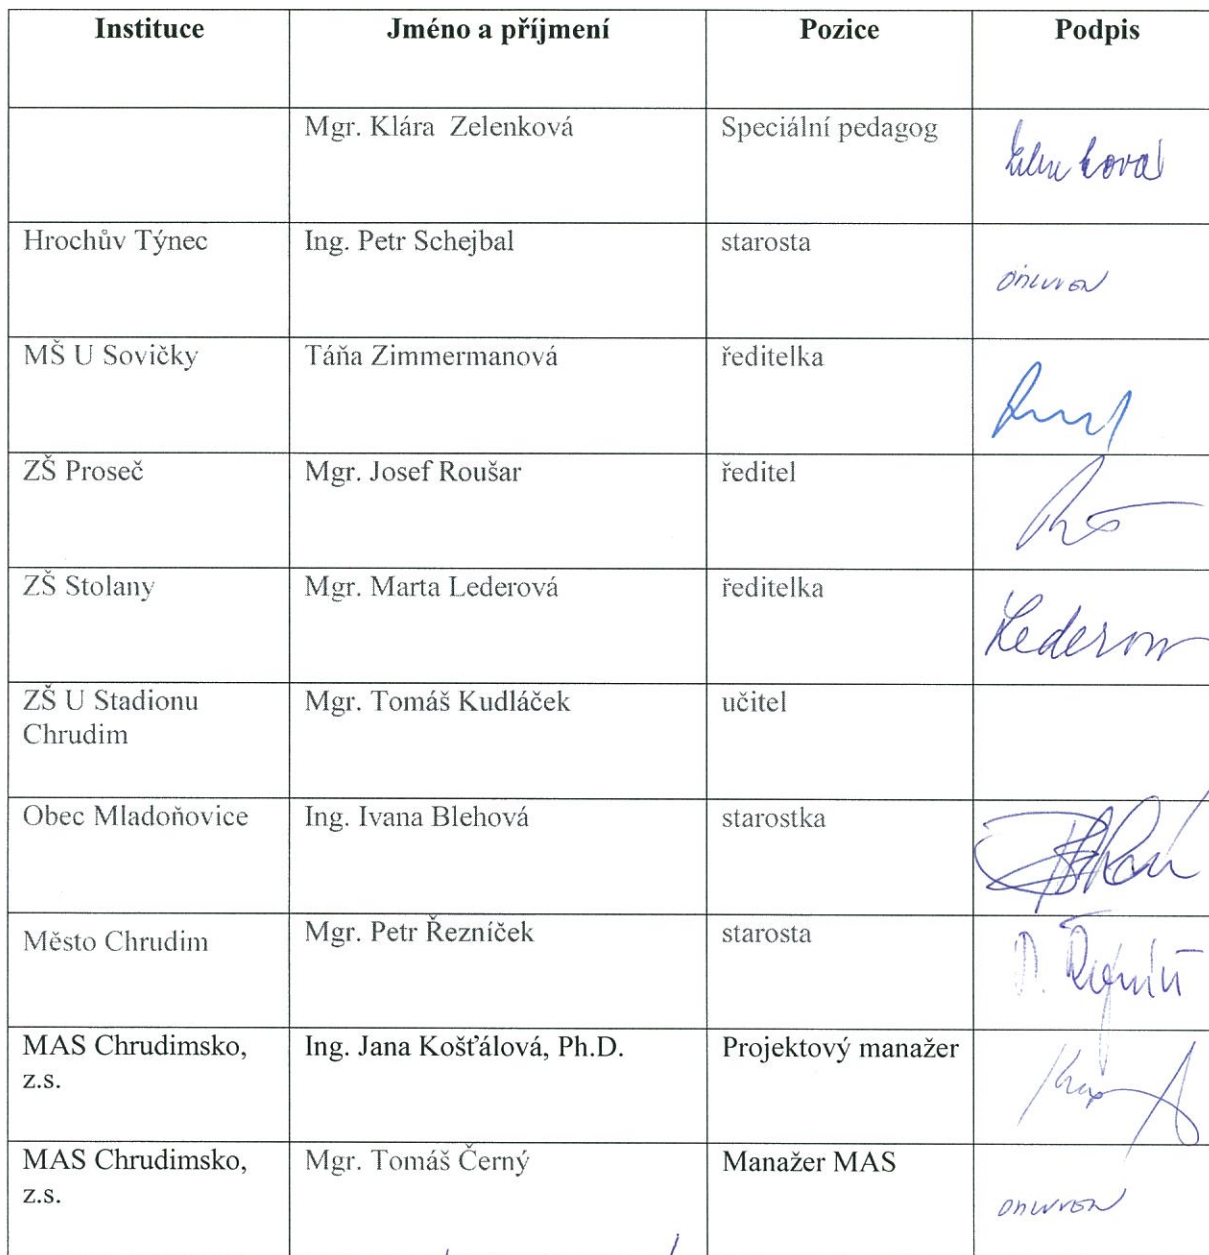 Instituce Jméno a příjmení Pozice Podpis
Mgr. Klára Zelenková Speciální pedagog
Hrochův Týnec Ing. Petr Schejbal starosta
OMLUVEN
MŠ U Sovičky Táňa Zimmermanová ředitelka
ZŠ Proseč Mgr. Josef Roušar ředitel
ZŠ Stolany Mgr. Marta Lederová ředitelka
ZŠ U Stadionu Mgr. Tomáš Kudláček učitel
Chrudim
Obec Mladoňovice Ing. Ivana Blehová starostka
Město Chrudim Mgr. Petr Řezníček starosta
MAS Chrudimsko, Ing. Jana Košťálová, Ph.D. Projektový manažer
z.s.
MAS Chrudimsko, Mgr. Tomáš Černý Manažer MAS
z.s. OMLUVEN